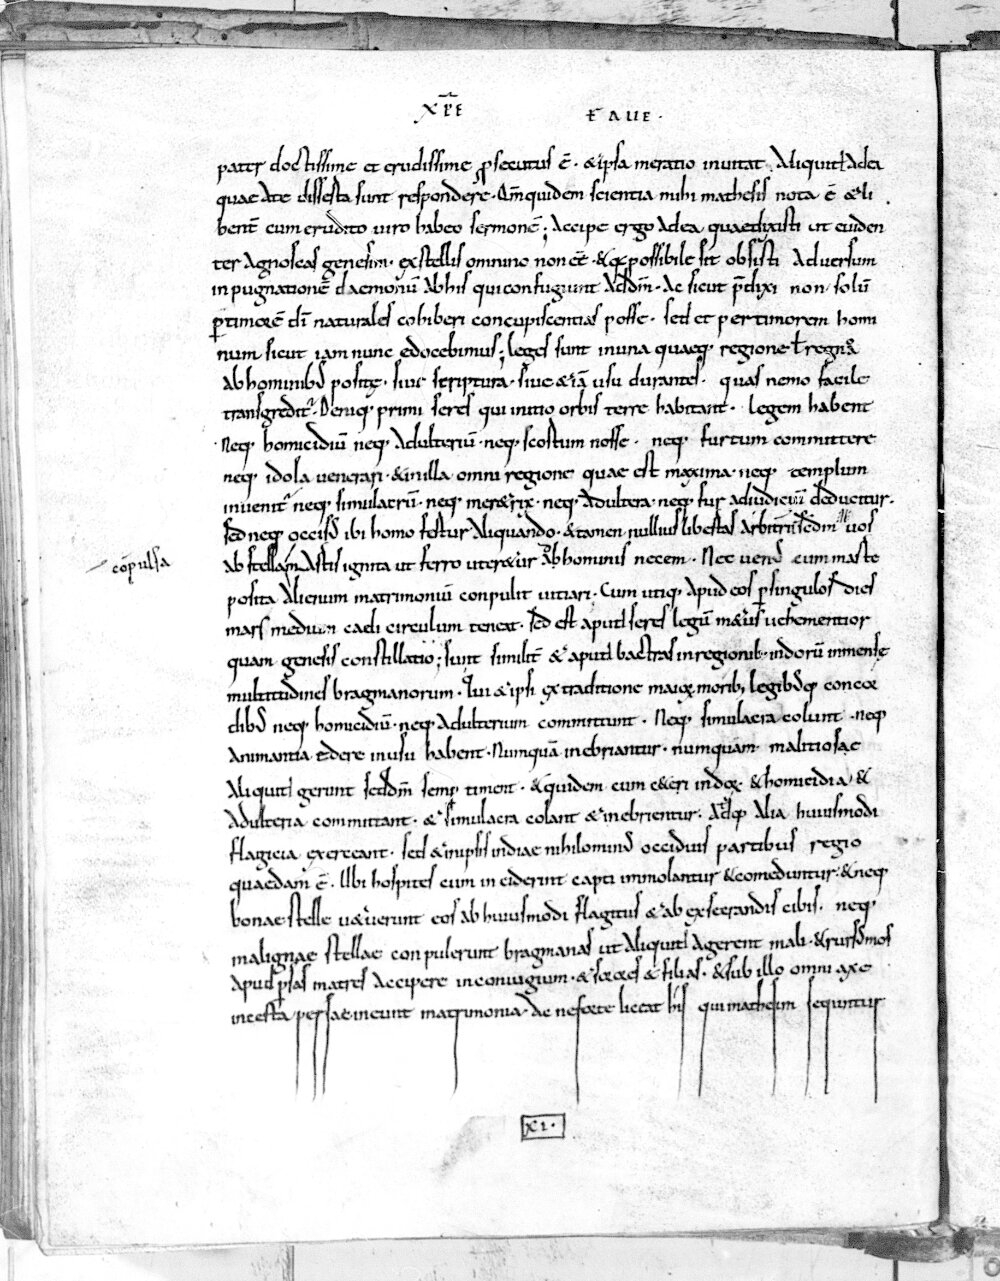 XPE FAUE·
pater doctissime et erudissime psecutus ē· & ipsa me ratio inuitat Aliquid Adea
quae Ate dissesta sunt respondere· Qm̄ quidem scientia mihi mathesis nota ē & li
bent̄ cum erudito uiro habeo sermonē; Accipe ergo Adea quae dixisti ut euiden
ter Agnoscas genesim· ex stellis omnino non ēē· & possibile sit obsisti Aduersum
inpugnationē daemoniū Abhis qui confugiunt Addm̄· Ac sicut p̄dixi non solū
p timorē dī naturales cohiberi concupiscentias posse· sed et per timorem homi
num sicut iam nunc edocebimus; leges sunt in una quaeq· regione ł regno
ab hominib; posite· siue scriptura· siue & iā usu durantes· quas nemo facile
transgredit̄· Deniq· primi seres qui initio orbis terre habitant· legem habent
Neq· homicidiū neq· Adulteriū· neq· scortum nosse· neq· furtum committere
neq· idola uenerari· & in illa omni regione quae est maxima· neq· templum
inuenit̄ neq· simulacrū· neq· mer&rix· neq· Adultera· neq· fur ad iudiciū deducitur·
Sed neq· occisus ibi homo fertur Aliquando· & tamen nullius libertas Arbitrii sedm̄ uos
ab stella Astis ignita ut ferro uteretur Ab hominis necem· Nec uenus cum marte
cōpulsa
posita Alienum matrimoniū conpulit uitiari· Cum utiq· Apud eos p singulos dies
mars medium caeli circulum teneat· Sed est aput seres legū m&us uehementior
quam genesis constillatio; sunt similit̄ & aput bactras in regionib· indorū inmense
multitudines bragmanorum· Qui & ipsi ex traditione maior morib; legibusq concor
dibus neq· homicidiū· neq· Adulterum committunt· Neq· simulacra colunt· neq
Animantia edere in usu habent· Numquā inebriantur· numquam· malitiosae
Aliquid gerunt sed dm̄ semp timent· & quidem cum c&eri indor· & homicidia &
Adulteria committant· & simulacra colant & inebrientur· Adq Alia huiusmodi
flagicia exerceant· sed & in ipsis indiae nihilominus occiduis partibus regio
quaedam ē· Ubi hospites cum inciderint capti immolantur & comeduntur· & neq
bonae stelle u&uerunt eos ab huiusmodi flagitiis & ab exsecrandis cibis· neq·
malignae stellae conpulerunt bragmanas ut Aliquid Agerent mali· & rursus mos
Aput psas matres Accipere in coniugium· & sorores & filias· & sub illo omni axe
incesta persae ineunt matrimonia· Ac ne forte liceat his qui mathesim sequntur
XI·